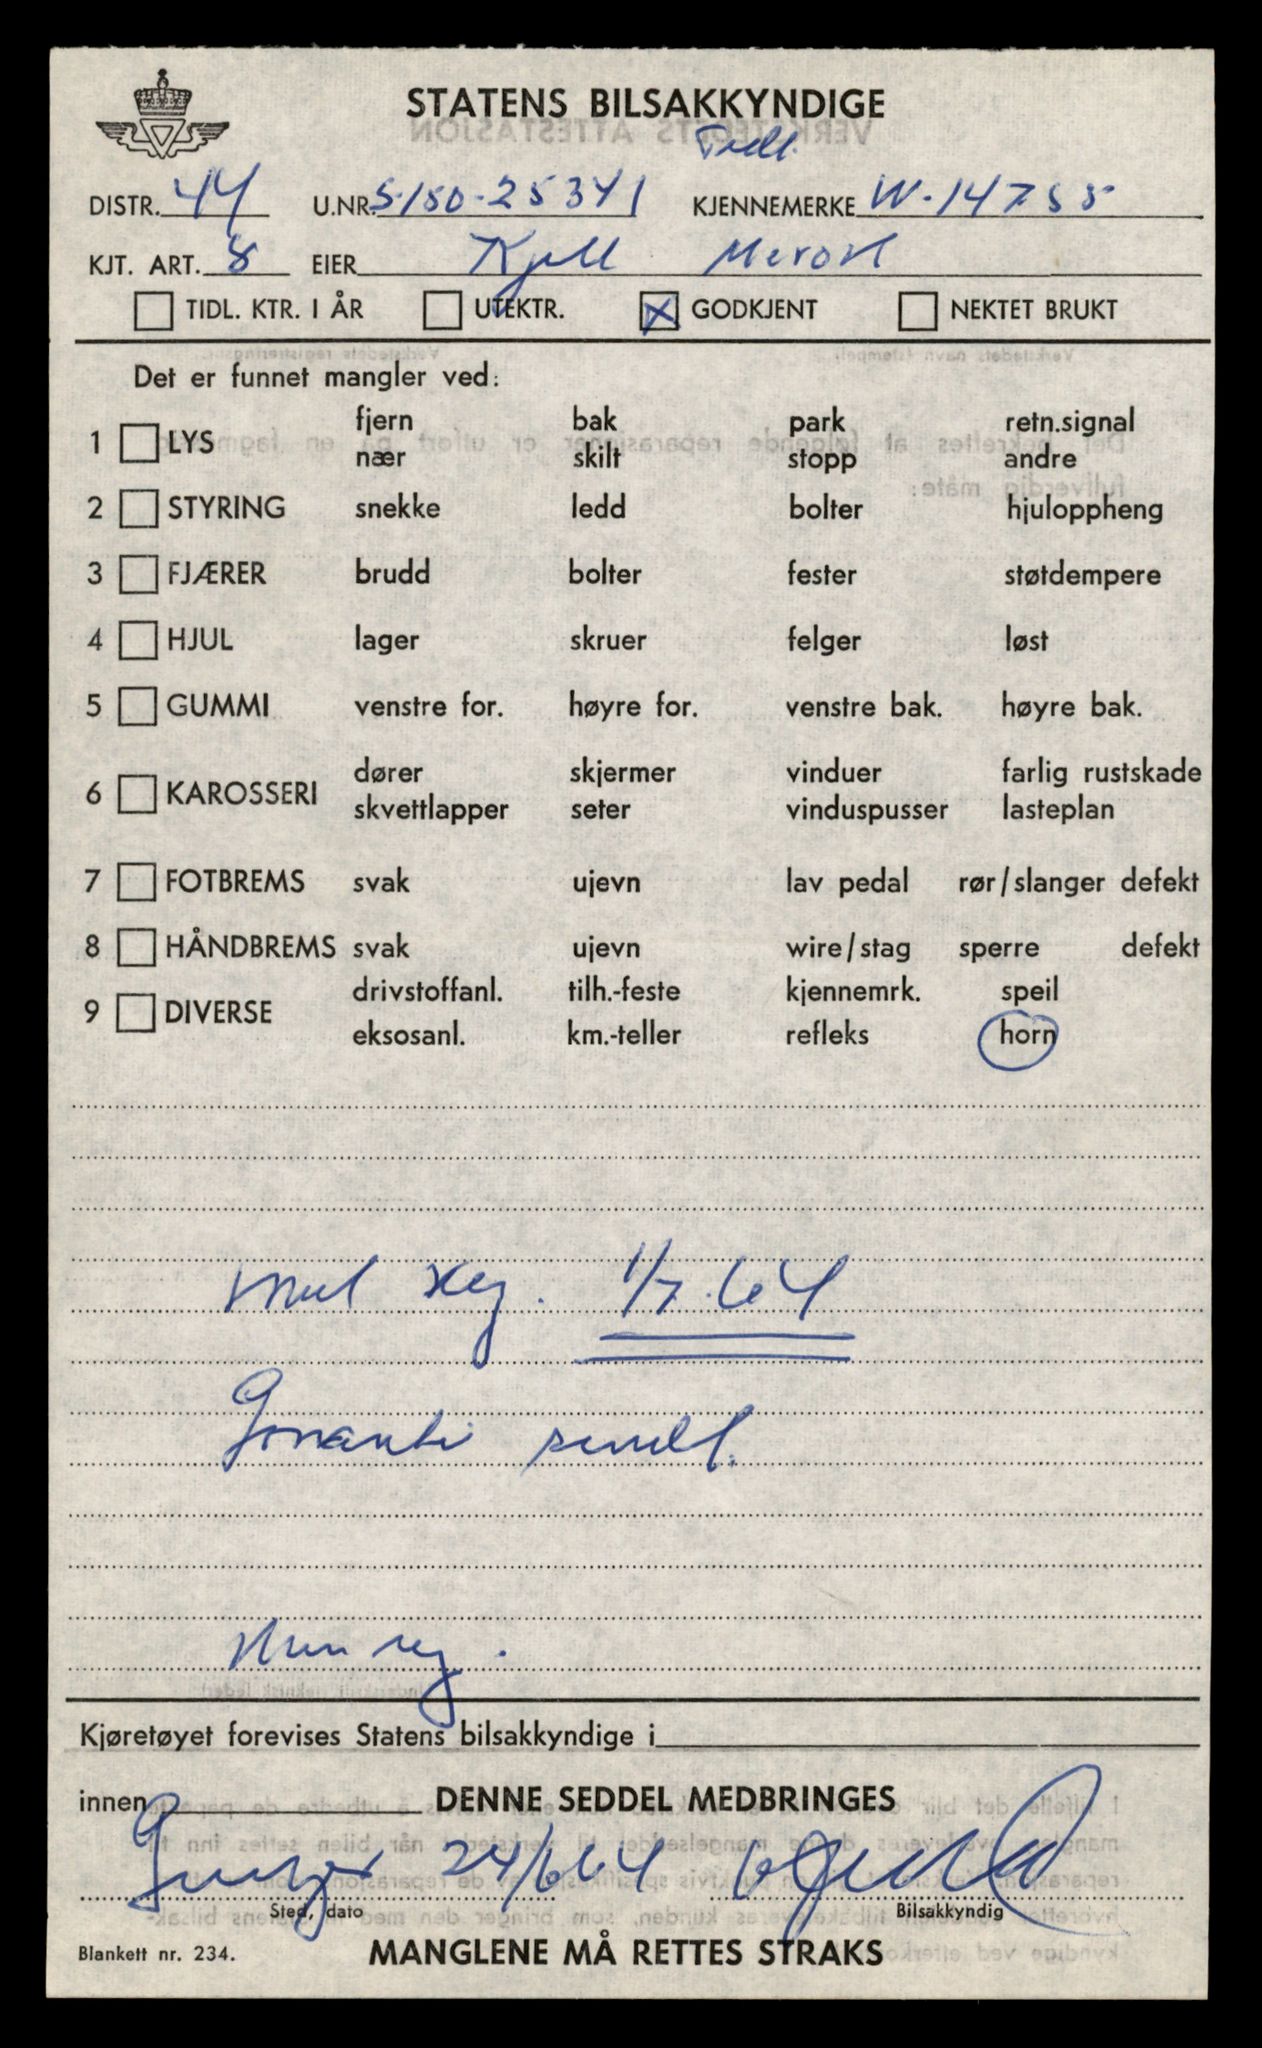 STATENS BILSAKKYNDIGE
Tidl.
DISTR. 44 U.NR. S-150-25341 KJENNEMERKE W-14755
KJT. ART. 8 EIER Kjell
TIDL. KTR. I ÅR UTEKTR. X GODKJENT NEKTET BRUKT
Det er funnet mangler ved:
fjern bak park retn.signal
1 LYS
nær skilt stopp andre
2 STYRING snekke ledd bolter hjuloppheng
3 FJÆRER brudd bolter fester støtdempere
4 HJUL lager skruer felger løst
5 GUMMI venstre for. høyre for. venstre bak. høyre bak.
dører skjermer vinduer farlig rustskade
6 KAROSSERI
skvettlapper seter vinduspusser lasteplan
7 FOTBREMS svak ujevn lav pedal rør/slanger defekt
8 HÅNDBREMS svak ujevn wire/stag sperre defekt
drivstoffanl. tilh.-feste kjennemrk. speil
9 DIVERSE
eksosanl. km.-teller refleks horn
reg. 1/7.64
Garanti
reg.
Kjøretøyet forevises Statens bilsakkyndige i
innen DENNE SEDDEL MEDBRINGES
24/6 64
Sted, dato Bilsakkyndig
Blankett nr. 234. MANGLENE MÅ RETTES STRAKS